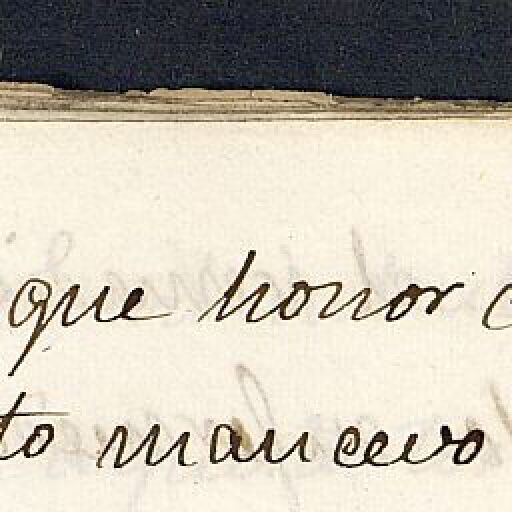 que honor
to mancevo